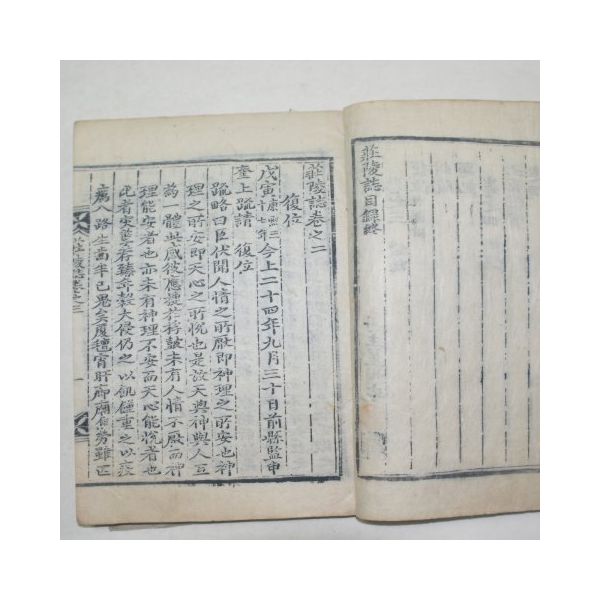 莊陵誌目録終
莊陵誌卷之二
復位
戊寅康熙三十七年今上二十四年九月三十日前縣監申
奎上䟽請復位
䟽略曰臣伏聞人情之所厭即神理之所安也神
理之所安即天心之所悅也是故天與神與人互
為一體共感彼應捷於桴鼓未有人情不厭而神
理能安者也亦未有神理不安而天心能悅者也
此者災荐臻年穀大侵仍之以飢饉重之以疫
癘人路生齒半已鬼矣廈氊宵旰廊廟 勞雖匹
莊陵誌卷之二
一